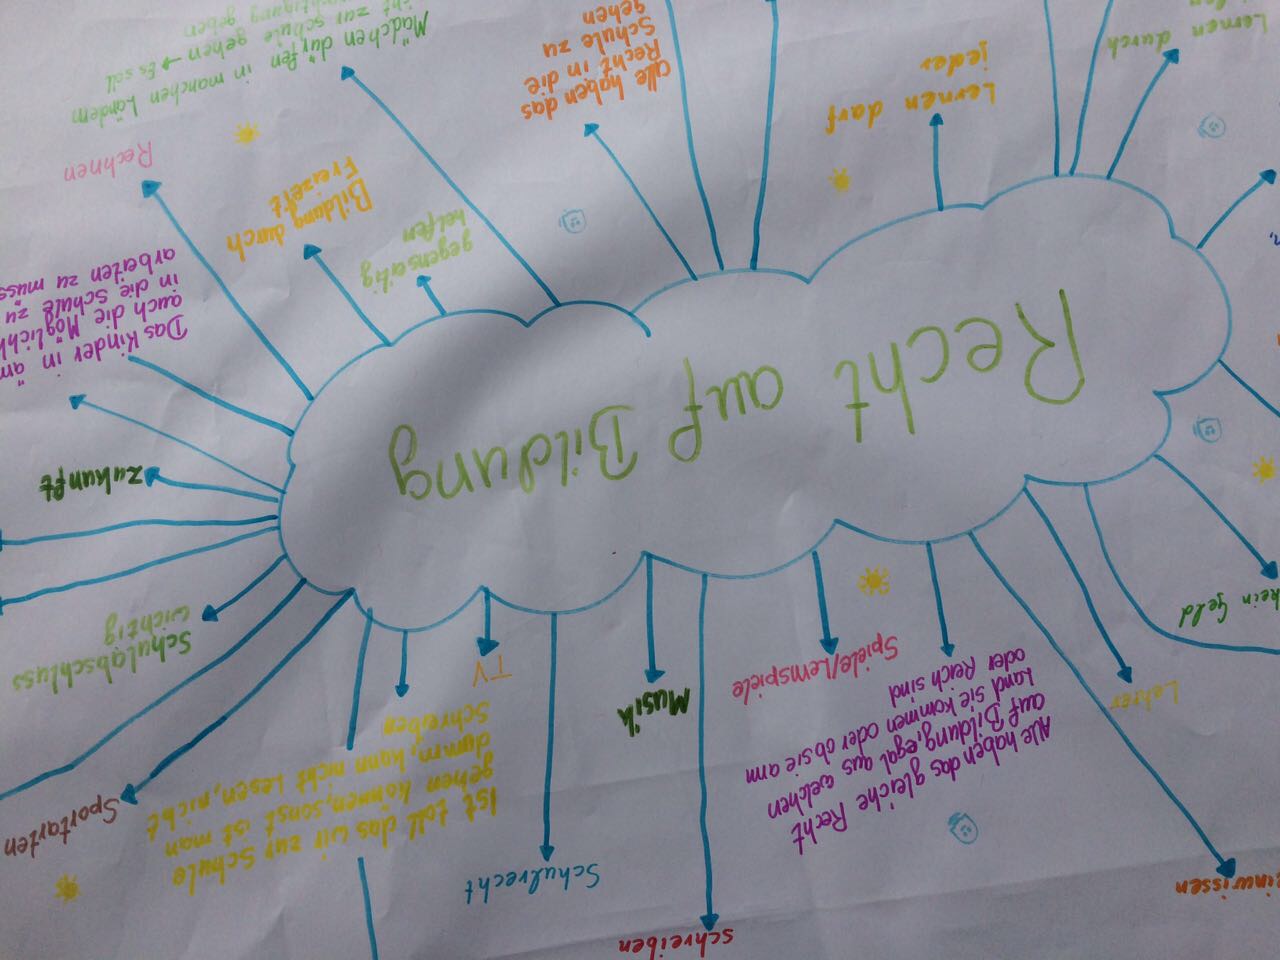 schreiben
Schulrecht
Alle haben das gleiche Recht
auf Bildung, egal aus welchen
Land sie kommen oder ob sie arm
oder Reich sind
Ist toll das wir zur Schule
gehen können, sonst ist man
dumm, kann nicht Lesen, nicht
Schreiben
Sportarten
Lehrer
Musik
Spiele/Lernspiele
TV
kein Geld
Schulabschluss
wichtig
Zukunft
Recht auf Bildung
Das Kinder in
auch die
in die Schule zu
arbeiten zu
gegenseitig
helfen
Bildung durch
Freizeit
Rechnen
Mädchen dürfen in manchen Ländern
zur schule gehen → Es soll
geben
alle haben das
Recht in die
Schule zu
gehen
Lernen darf
jeder
Lernen durch